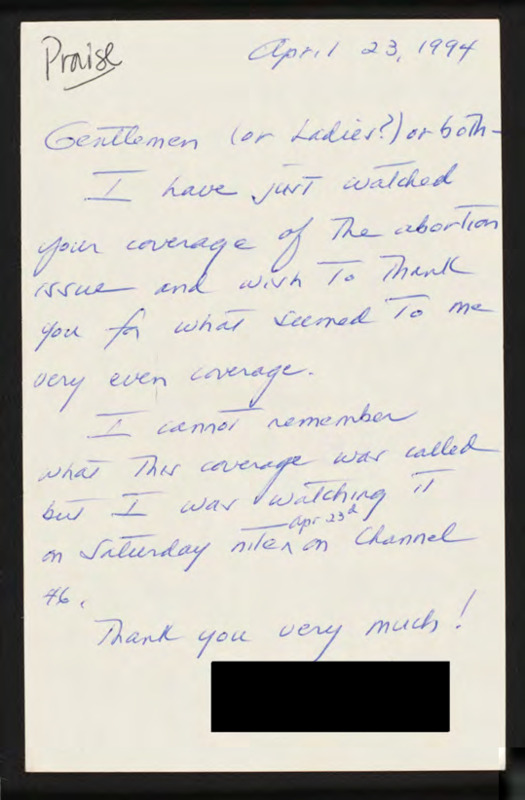 Praise
April 23, 1994
Gentlemen (or Ladies?) or both-
I have just watched
your coverage of the abortion
issue and wish to thank
you for what seemed to me
very even coverage.
I cannot remember
what this coverage was called
but I was watching it
apr 23d
on Saturday nite ^ on Channel
46.
Thank you very much!